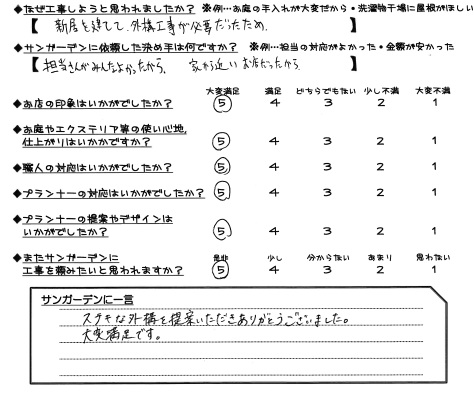 ◆なぜ工事しようと思われましたか？ ※例…お庭の手入れが大変だから・洗濯物干場に屋根がほしい
【 新居を建てて、外構工事が必要だったため. 】
◆サンガーデンに依頼した決め手は何ですか？ ※例…担当の対応がよかった・金額が安かった
【 担当さんがみんなよかったから、 家から近いお店だったから 】
大変満足 満足 どちらでもない 少し不満 大変不満
◆お店の印象はいかがでしたか？ 5 4 3 2 1
◆お庭やエクステリア等の使い心地、
仕上がりはいかがですか？ 5 4 3 2 1
◆職人の対応はいかがでしたか？ 5 4 3 2 1
◆プランナーの対応はいかがでしたか？ 5 4 3 2 1
◆プランナーの提案やデザインは
いかがでしたか？ 5 4 3 2 1
◆またサンガーデンに 是非 少し 分からない あまり 思わない
工事を頼みたいと思われますか？ 5 4 3 2 1
サンガーデンに一言
ステキな外構を提案いただきありがとうございました。
大変満足です。